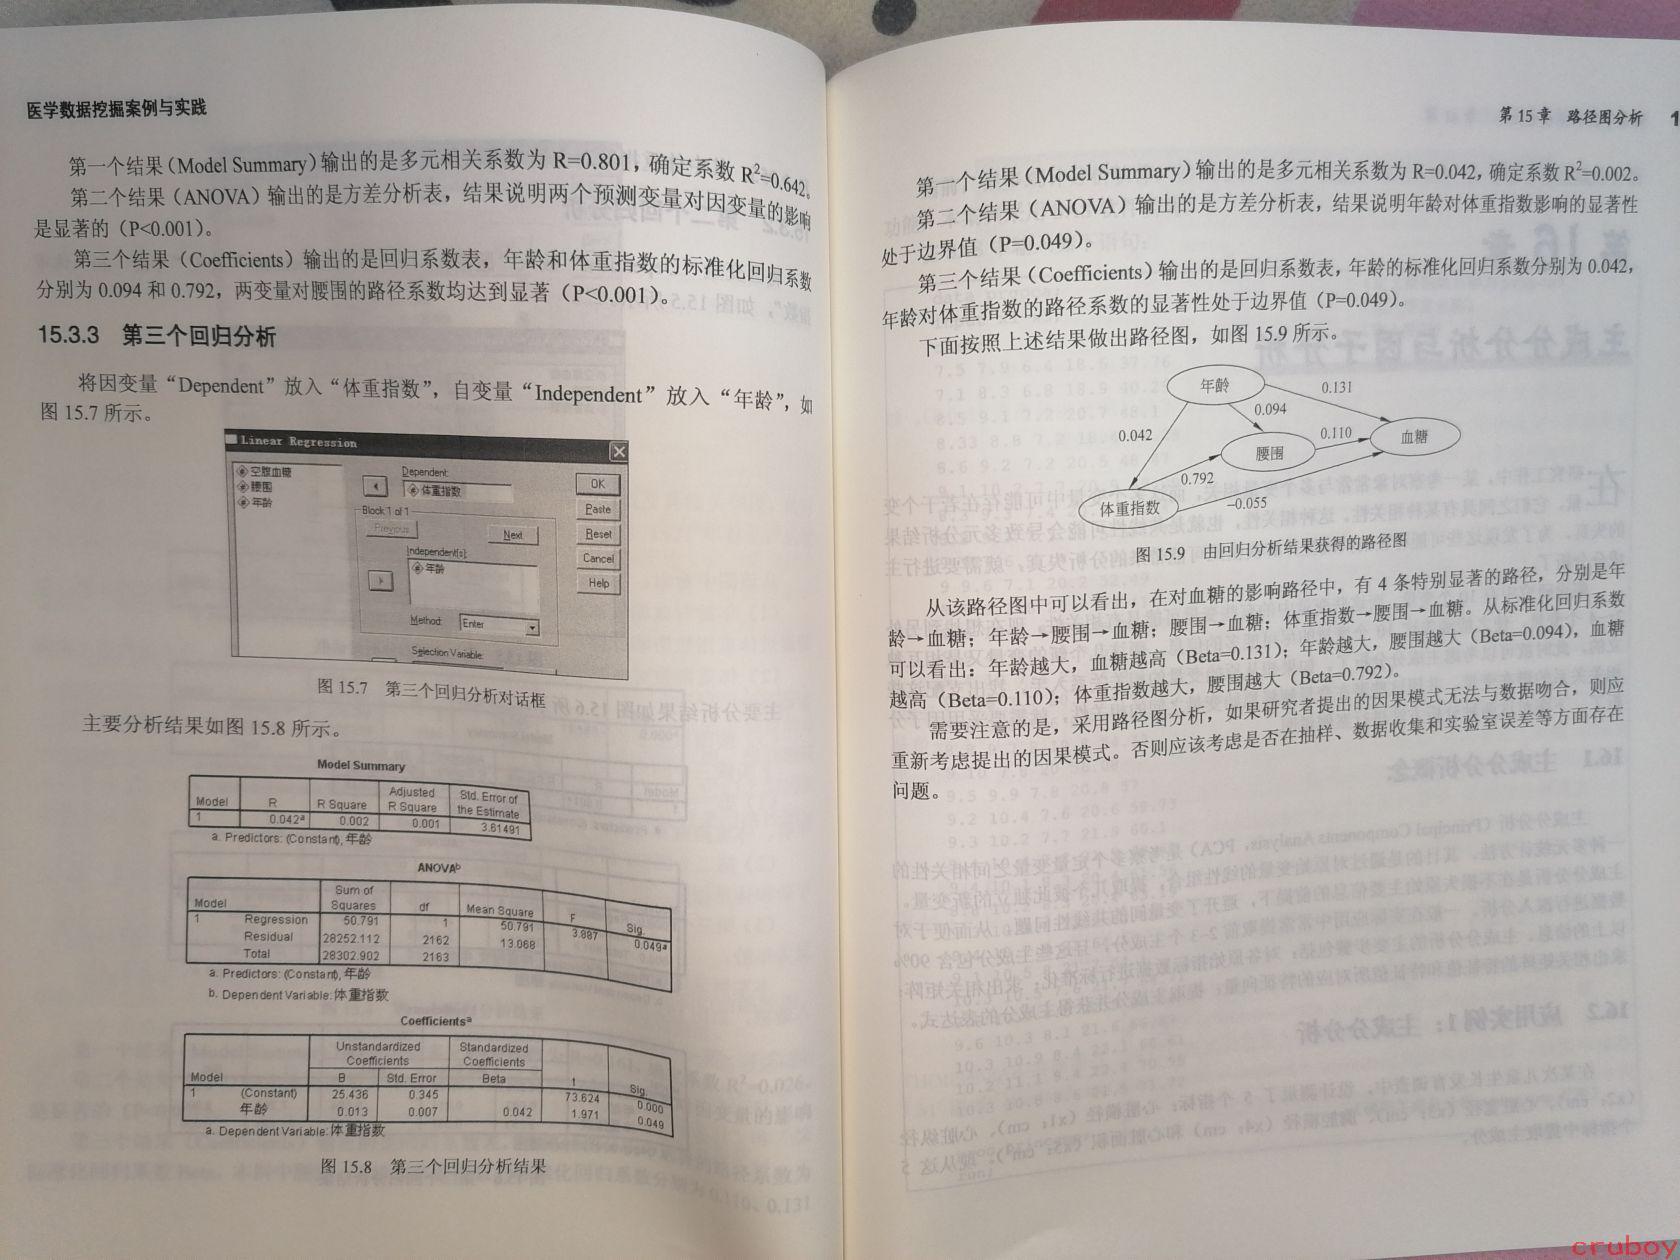 医学数据挖掘案例与实践
第一个结果(Model Summary)输出的是多元相关系数为 R=0.801,确定系数 R²=0.642。
第二个结果(ANOVA)输出的是方差分析表,结果说明两个预测变量对因变量的影响
是显著的(P<0.001)。
第三个结果(Coefficients)输出的是回归系数表,年龄和体重指数的标准化回归系数
分别为 0.094 和 0.792,两变量对腰围的路径系数均达到显著(P<0.001)。
15.3.3 第三个回归分析
将因变量“Dependent”放入“体重指数”,自变量“Independent”放入“年龄”,如
图 15.7 所示。
Linear Regression
空腹血糖
腰围
年龄
Dependent:
体重指数
Block 1 of 1
Previous
Next
Independent(s):
年龄
Method:
Enter
Selection Variable:
OK
Paste
Reset
Cancel
Help
图 15.7 第三个回归分析对话框
主要分析结果如图 15.8 所示。
Model Summary
Model R R Square Adjusted R Square Std. Error of the Estimate
1 0.042a 0.002 0.001 3.61491
a. Predictors: (Constant), 年龄
ANOVAb
Model Sum of Squares df Mean Square F Sig.
1 Regression 50.791 1 50.791 3.887 0.049a
Residual 28252.112 2162 13.068
Total 28302.902 2163
a. Predictors: (Constant), 年龄
b. Dependent Variable: 体重指数
Coefficientsa
Unstandardized Coefficients Standardized Coefficients
Model B Std. Error Beta t Sig.
1 (Constant) 25.436 0.345 73.624 0.000
年龄 0.013 0.007 0.042 1.971 0.049
a. Dependent Variable: 体重指数
图 15.8 第三个回归分析结果
第 15 章 路径图分析 1
第一个结果(Model Summary)输出的是多元相关系数为 R=0.042,确定系数 R²=0.002。
第二个结果(ANOVA)输出的是方差分析表,结果说明年龄对体重指数影响的显著性
处于边界值(P=0.049)。
第三个结果(Coefficients)输出的是回归系数表,年龄的标准化回归系数分别为 0.042,
年龄对体重指数的路径系数的显著性处于边界值(P=0.049)。
下面按照上述结果做出路径图,如图 15.9 所示。
年龄
0.131
0.094
0.042
0.110
血糖
腰围
0.792
体重指数
-0.055
图 15.9 由回归分析结果获得的路径图
从该路径图中可以看出,在对血糖的影响路径中,有 4 条特别显著的路径,分别是年
龄→血糖;年龄→腰围→血糖;腰围→血糖;体重指数→腰围→血糖。从标准化回归系数
可以看出:年龄越大,血糖越高(Beta=0.131);年龄越大,腰围越大(Beta=0.094),血糖
越高(Beta=0.110);体重指数越大,腰围越大(Beta=0.792)。
需要注意的是,采用路径图分析,如果研究者提出的因果模式无法与数据吻合,则应
重新考虑提出的因果模式。否则应该考虑是否在抽样、数据收集和实验室误差等方面存在
问题。
cruboy